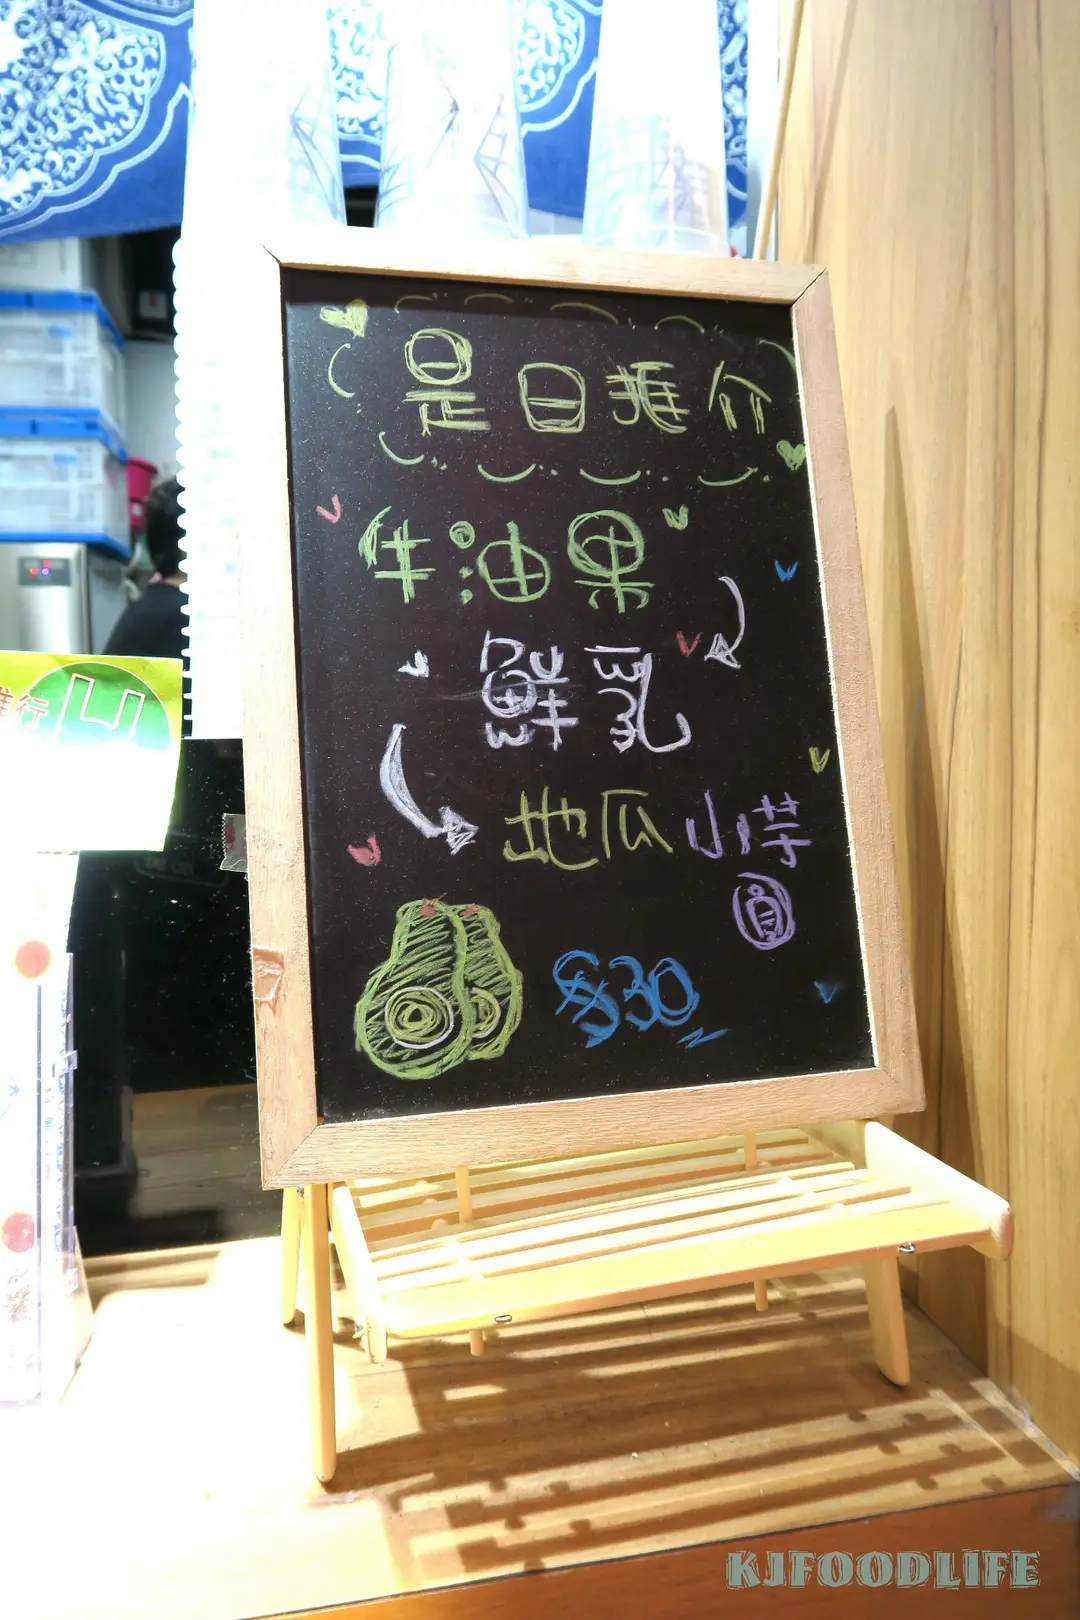 是日推介
牛油果
鮮乳
地瓜小芋
圓
$30
推行
KJFOODLIFE